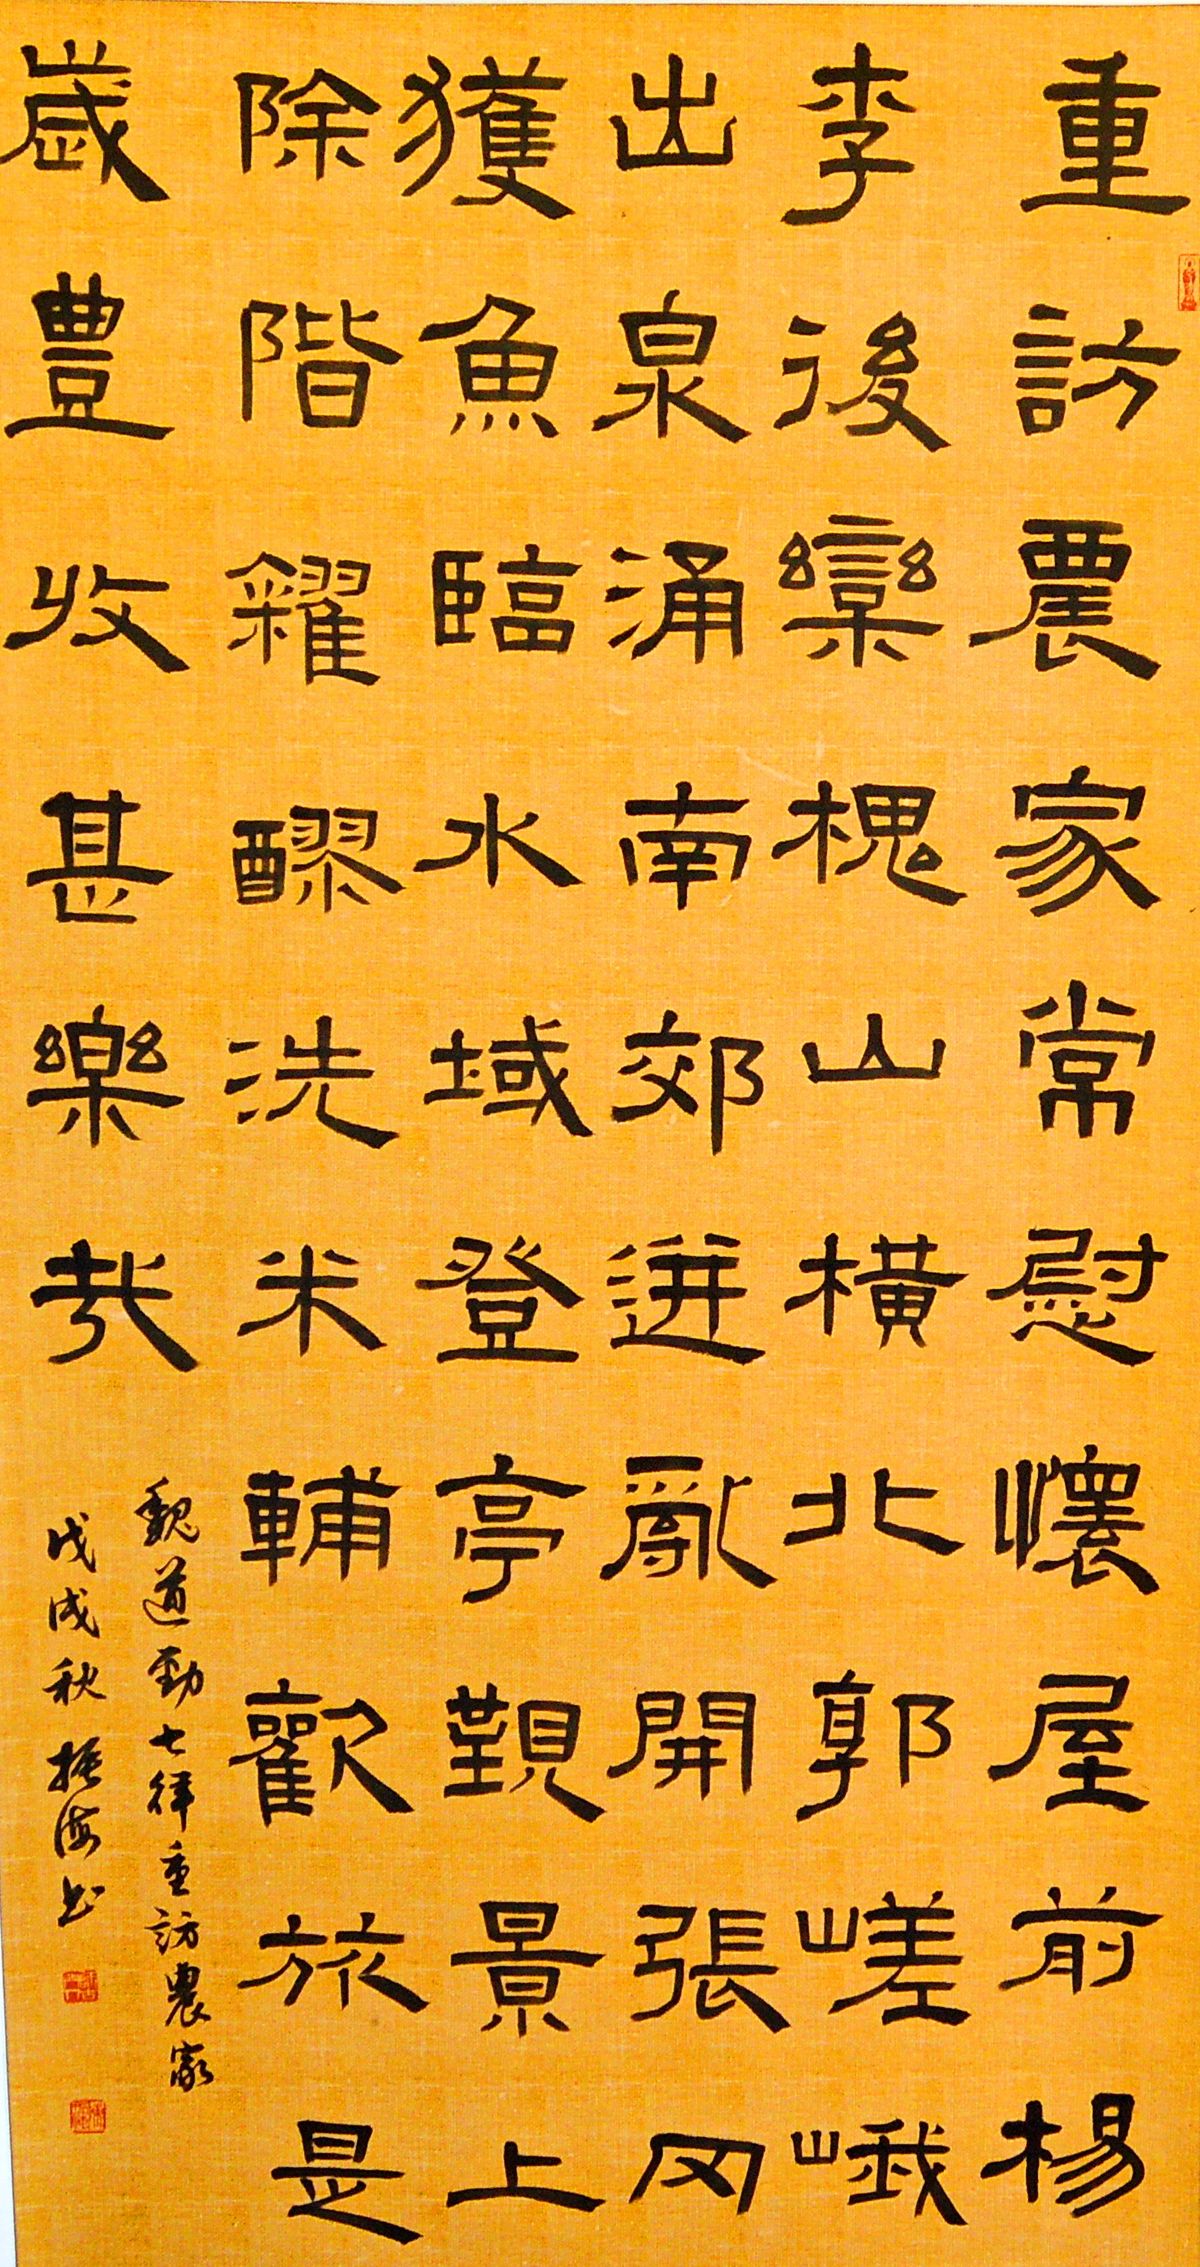 重訪農家常慰懷屋前楊
李後欒槐山橫北郭嵯峨
出泉涌南郊迸亂開張网
獲魚臨水域登亭覲景上
除階糴醪洗米輔歡旅是
歲豐收甚樂哉
魏道勁七律重訪農家
戊戌秋振海书